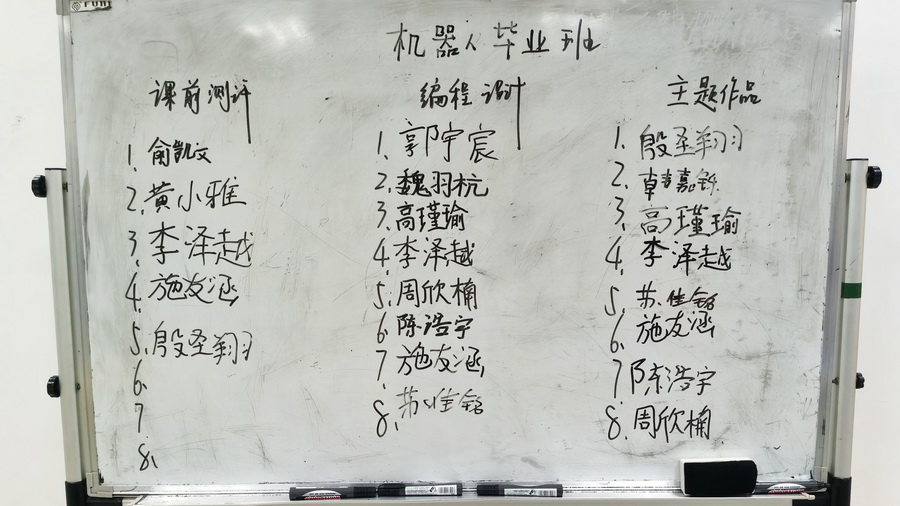 机器人毕业班
课前测评
1. 俞凯文
2. 黄小雅
3. 李泽越
4. 施友涵
5. 殷圣翔
6.
7
8.
编程设计
1. 郭宇宸
2. 魏羽杭
3. 高瑾瑜
4. 李泽越
5. 周欣楠
6. 陈浩宇
7 施友涵
8. 苏佳铭
主题作品
1. 殷圣翔
2. 韩嘉铄
3. 高瑾瑜
4. 李泽越
5. 苏佳铭
6. 施友涵
7 陈浩宇
8. 周欣楠